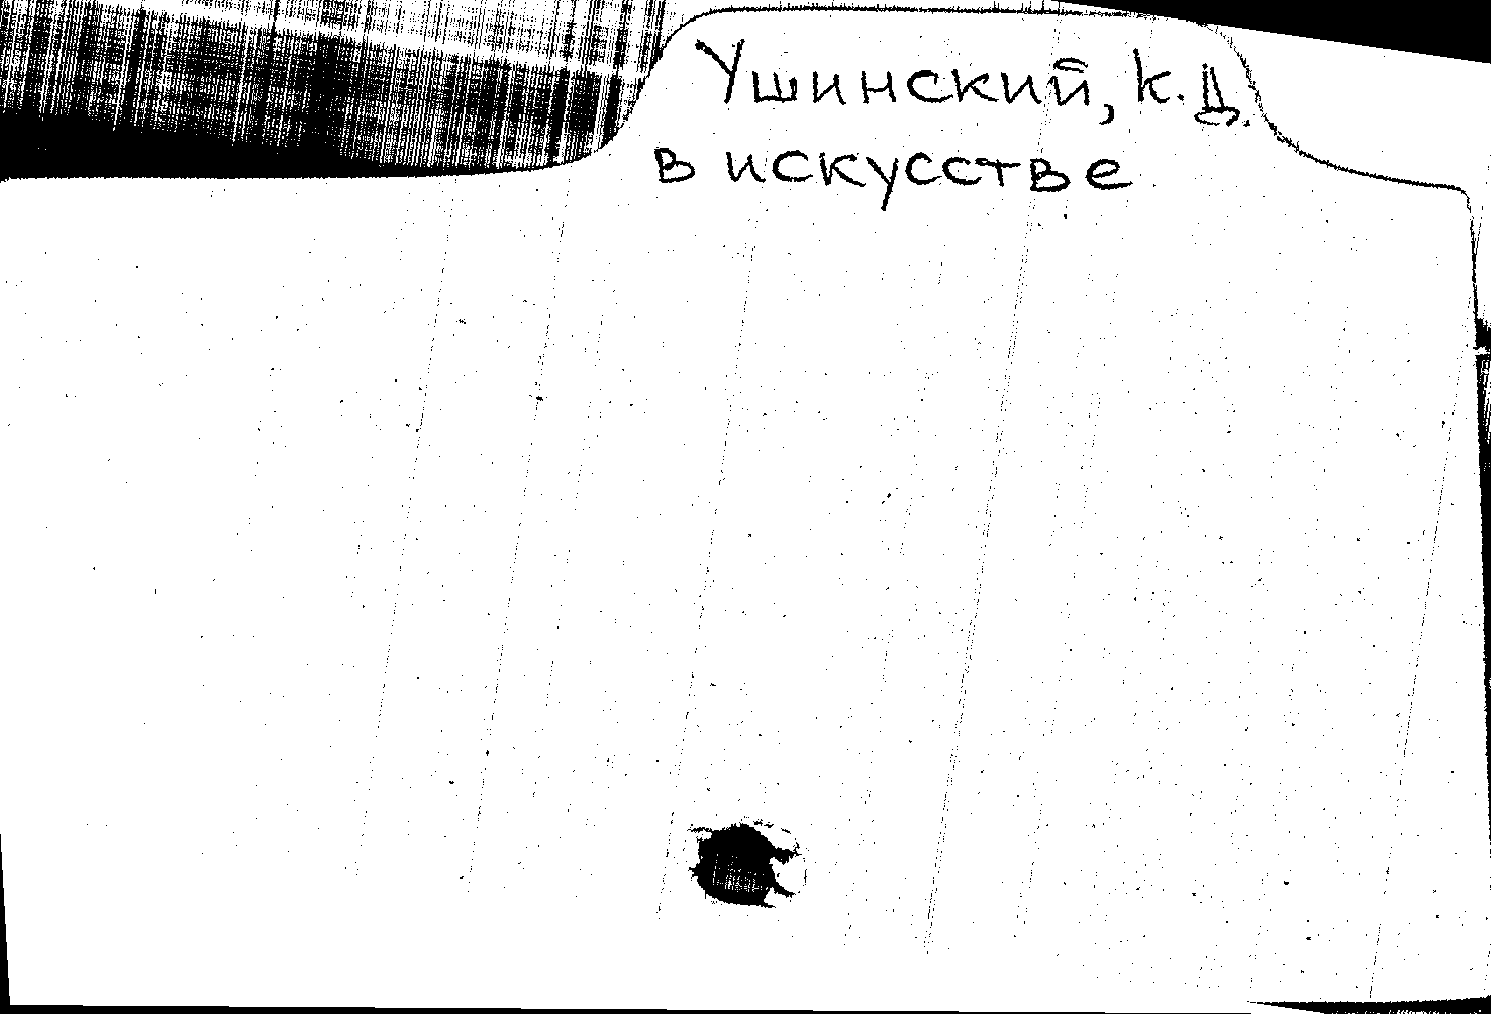 Ушинский, К.Д.
в искусстве